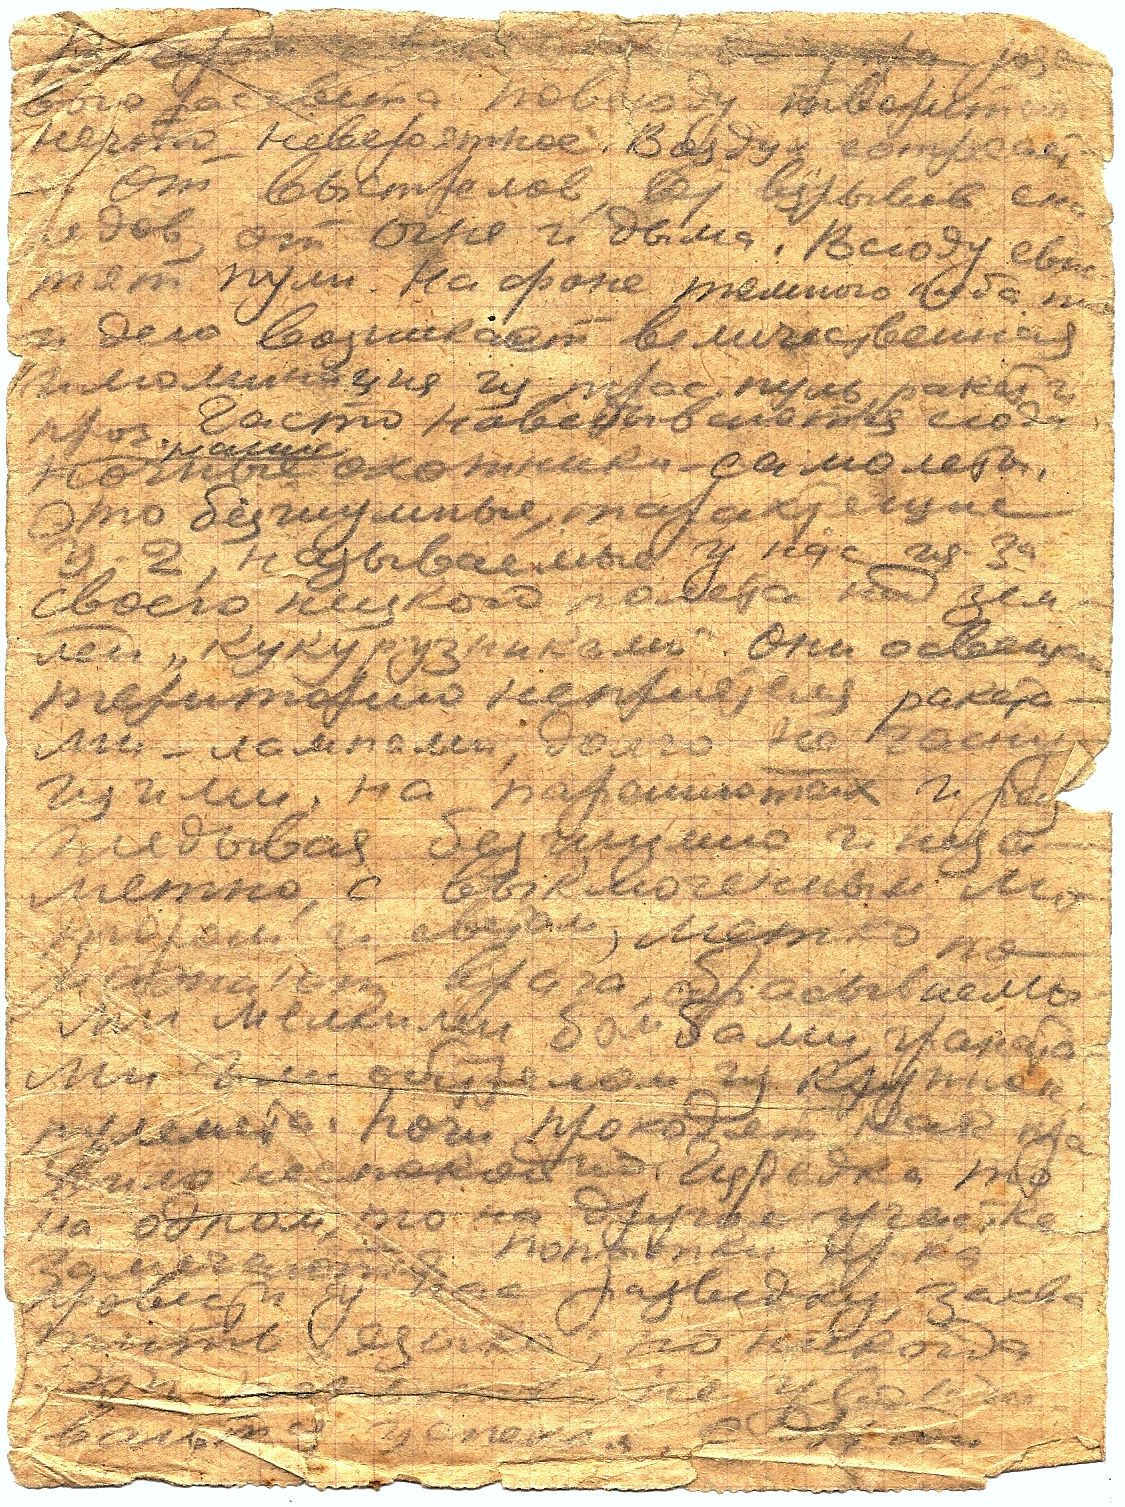 розо
вого рассвета повсюду творится
нечто невероятное. Воздух сотрясает
от выстрелов, от взрывов сна
рядов, от огня и дыма. Всюду свис
тят пули. На фоне темного неба то
и дело возникает величественная
иллюминация из трас. пуль, ракет и
проч. Часто наведываются сюда
ночные наши охотники-самолеты.
Это безшумные, тарахтящие
У-2, называемые у нас из-за
своего низкого полета над зем-
лей „кукурузниками". Они освещают
територию неприятеля ракета-
ми-лампами, долго не гасну
щими, на парашютах и раз
ведывая безшумно и неза-
метно, с выключенным мо-
тором и сверху, метко по-
врага, сбрасываемы-
ми мелкими бомбами, граната-
ми или обстрелом из крупнок.
пулемета. Ночи проходят как пра
вило неспокойно. Изредка то
на одном, то на другом участке
замечаются попытки врага
провести у нас разведку, захва
тить „языка", но никогда
не
успехом